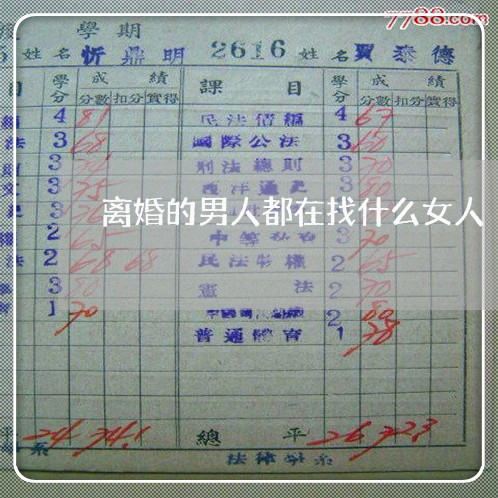 7788.com
學期
姓名 忻鼎明 2616 姓名 賈泰德
目 學分 成績 課目 學分 成績
分數 扣分 實得 分數 扣分 實得
4 81 民法債編 4 67
法 3 68 國際公法 3 60
3 刑法總則 3 70
3 75 西洋通史 3 80
离婚的男人都在找什么女人
2 65 3 70
法 2 68 68 民法物權 2 65
3 80 憲法 2 70
1 70 2 80
普通體育 1 78
平 24 74.1 總平 26 72.3
系 法律學系